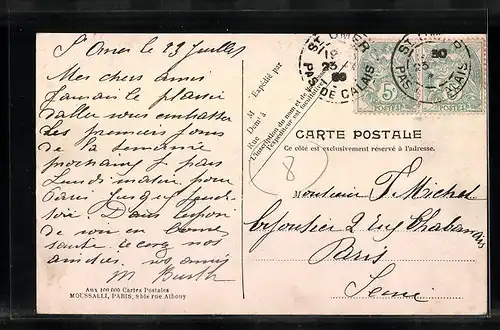 St Omer le 23 Juillet
Mes chers amis
J'aurai le plaisir
d'aller vous embrasser
les premiers jours
de la semaine
prochaine je pars
Lundi matin pour
Paris jusqu'
soir Dans l'espoir
de vous en bonne
santé. Recevez nos
amitiés. vos amis
M
Aux 100 000 Cartes Postales
MOUSSALLI, PARIS, 8 bis rue Albouy
Expédié par
M
Demt à
Rue
L'inscription du nom et de
l'expéditeur est facultative
ST OMER
PAS DE CALAIS
23
5c
POSTES
ST OMER
PAS DE CALAIS
23
POSTES
CARTE POSTALE
Ce côté est exclusivement réservé à l'adresse.
8
Monsieur P. Michel
Bijoutier 2 Rue Chabanais
Paris
Seine